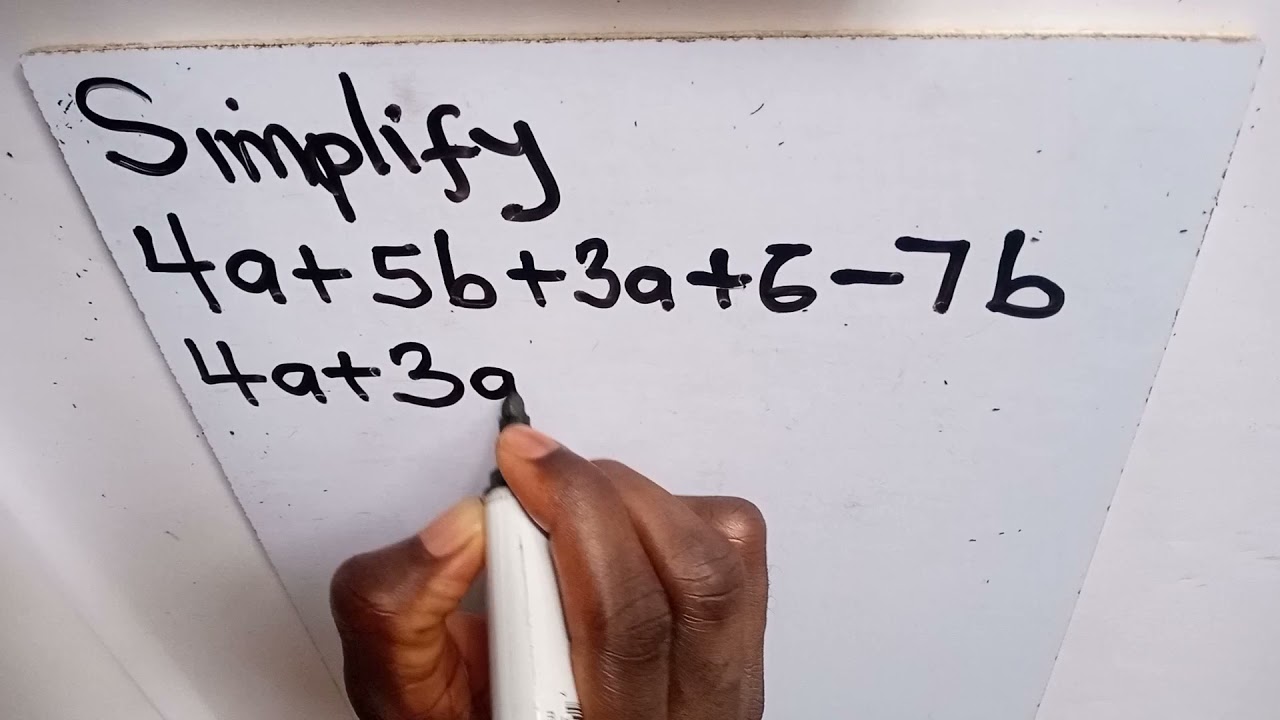 Simplify
4a+5b+3a+6-7b
4a+3a